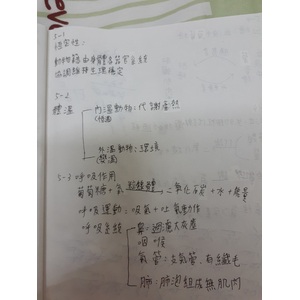 5-1
恆定性:
動物藉由身體各器官系統
協調維持生理穩定
5-2
體溫
內溫動物:代謝產熱
(恆溫
外溫動物:環境
(變溫)
5-3 呼吸作用
葡萄糖+氧 粒線體 二氧化碳+水+能量
呼吸運動=吸氣+吐氣動作
呼吸系統
鼻:過濾大灰塵
咽喉
氣管:支氣管、有纖毛
肺:肺泡組成無肌肉